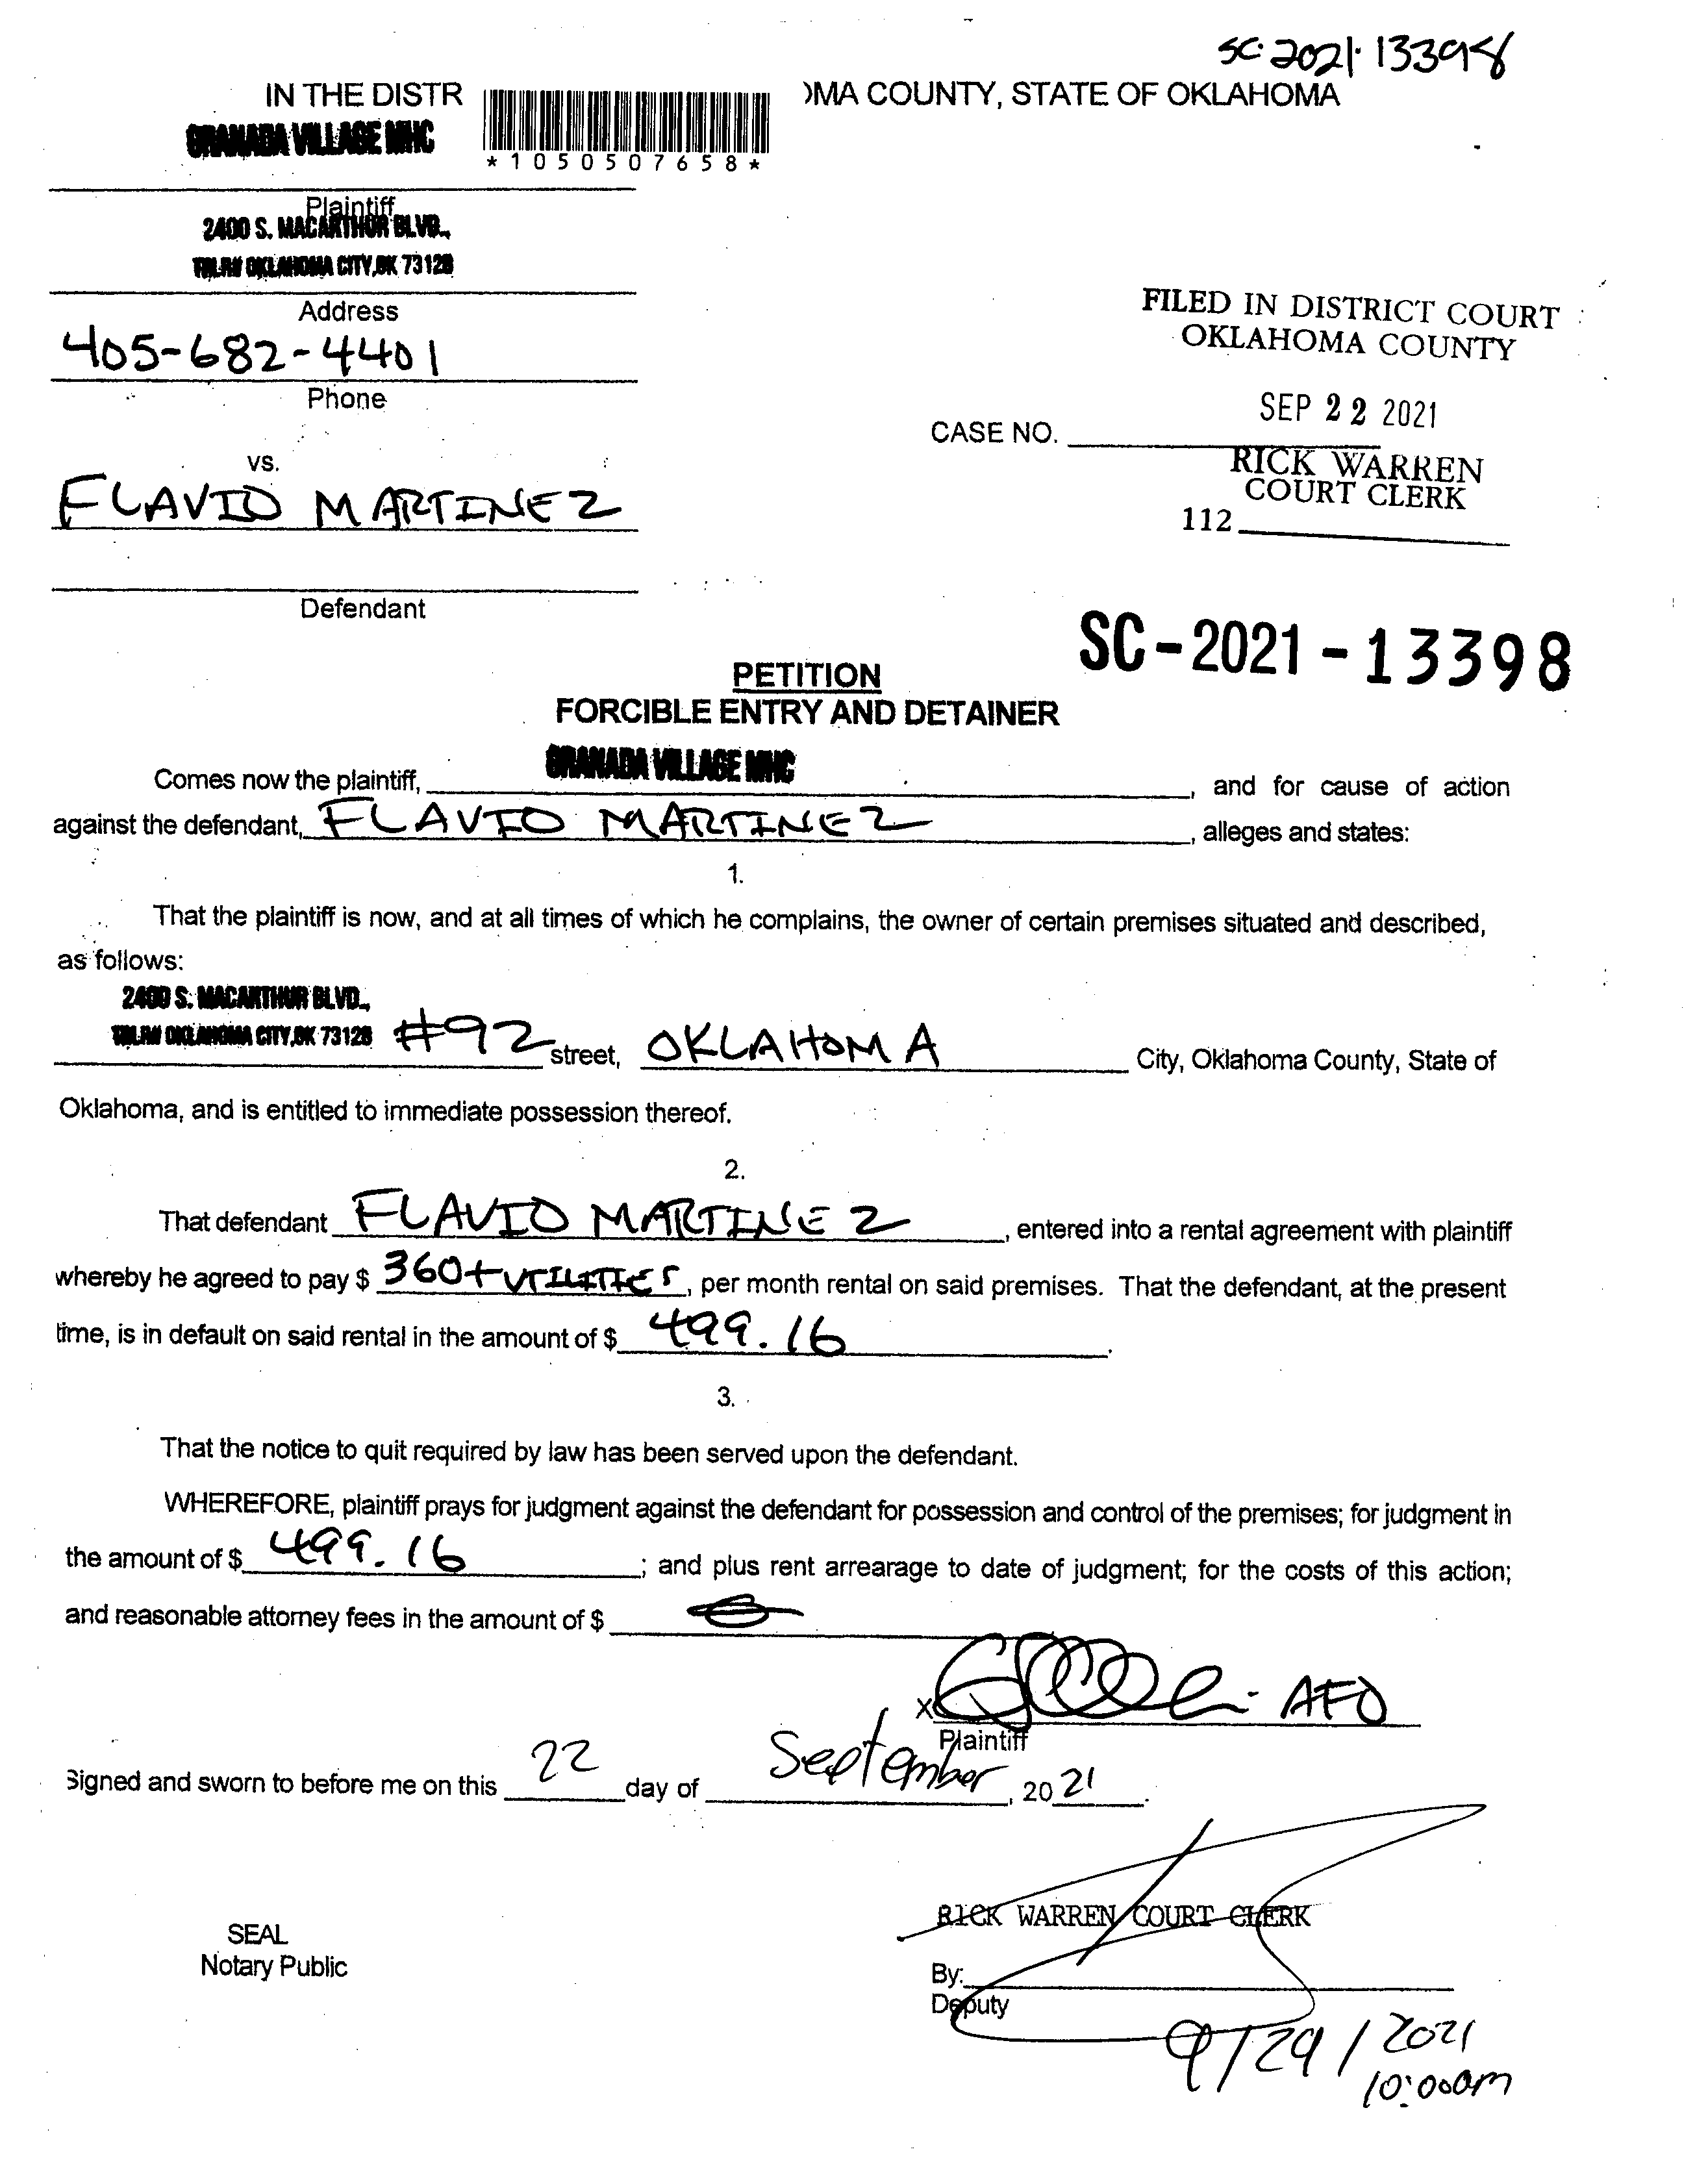 SC-2021-13398
IN THE DISTR
OMA COUNTY, STATE OF OKLAHOMA
*1050507658*
GRANADA VILLAGE MHC
Plaintiff
2400 S. MACARTHUR BLVD.,
OKLAHOMA CITY, OK 73128
Address
405-682-4401
Phone
FILED IN DISTRICT COURT
OKLAHOMA COUNTY
SEP 22 2021
CASE NO.
RICK WARREN
COURT CLERK
112
vs.
FLAVIO MARTINEZ
Defendant
SC-2021-13398
PETITION
FORCIBLE ENTRY AND DETAINER
Comes now the plaintiff, GRANADA VILLAGE MHC, and for cause of action
against the defendant, FLAVIO MARTINEZ, alleges and states:
1.
That the plaintiff is now, and at all times of which he complains, the owner of certain premises situated and described,
as follows:
2400 S. MACARTHUR BLVD.,
OKLAHOMA CITY, OK 73128 #92 street, OKLAHOMA City, Oklahoma County, State of
Oklahoma, and is entitled to immediate possession thereof.
2.
That defendant FLAVIO MARTINEZ, entered into a rental agreement with plaintiff
whereby he agreed to pay $ 360+UTILITIES, per month rental on said premises. That the defendant, at the present
time, is in default on said rental in the amount of $ 499.16.
3.
That the notice to quit required by law has been served upon the defendant.
WHEREFORE, plaintiff prays for judgment against the defendant for possession and control of the premises; for judgment in
the amount of $ 499.16; and plus rent arrearage to date of judgment; for the costs of this action;
and reasonable attorney fees in the amount of $
X AFO
Plaintiff
Signed and sworn to before me on this 22 day of September, 2021.
RICK WARREN COURT CLERK
SEAL
Notary Public
By:
Deputy
9/29/2021
10:00am